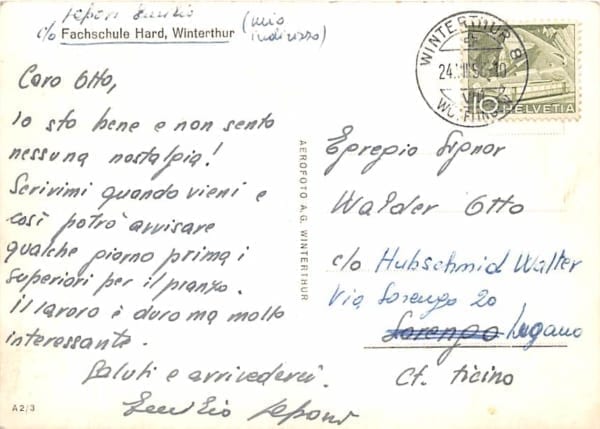 Lepori Emilio
c/o Fachschule Hard, Winterthur (mio indirizzo)
Caro Otto,
Io sto bene e non sento
nessuna nostalgia!
Scrivimi quando vieni e
così potrò avvisare
qualche giorno prima i
superiori per il pranzo.
Il lavoro è duro ma molto
interessante.
Saluti e arrivederci.
Emilio Lepori
A2/3
AEROFOTO A.G. WINTERTHUR
WINTERTHUR 8
24.
10
HELVETIA
Egregio Signor
Walder Otto
c/o Hubschmid Walter
Via Sorengo 20
Sorengo Lugano
Ct. Ticino